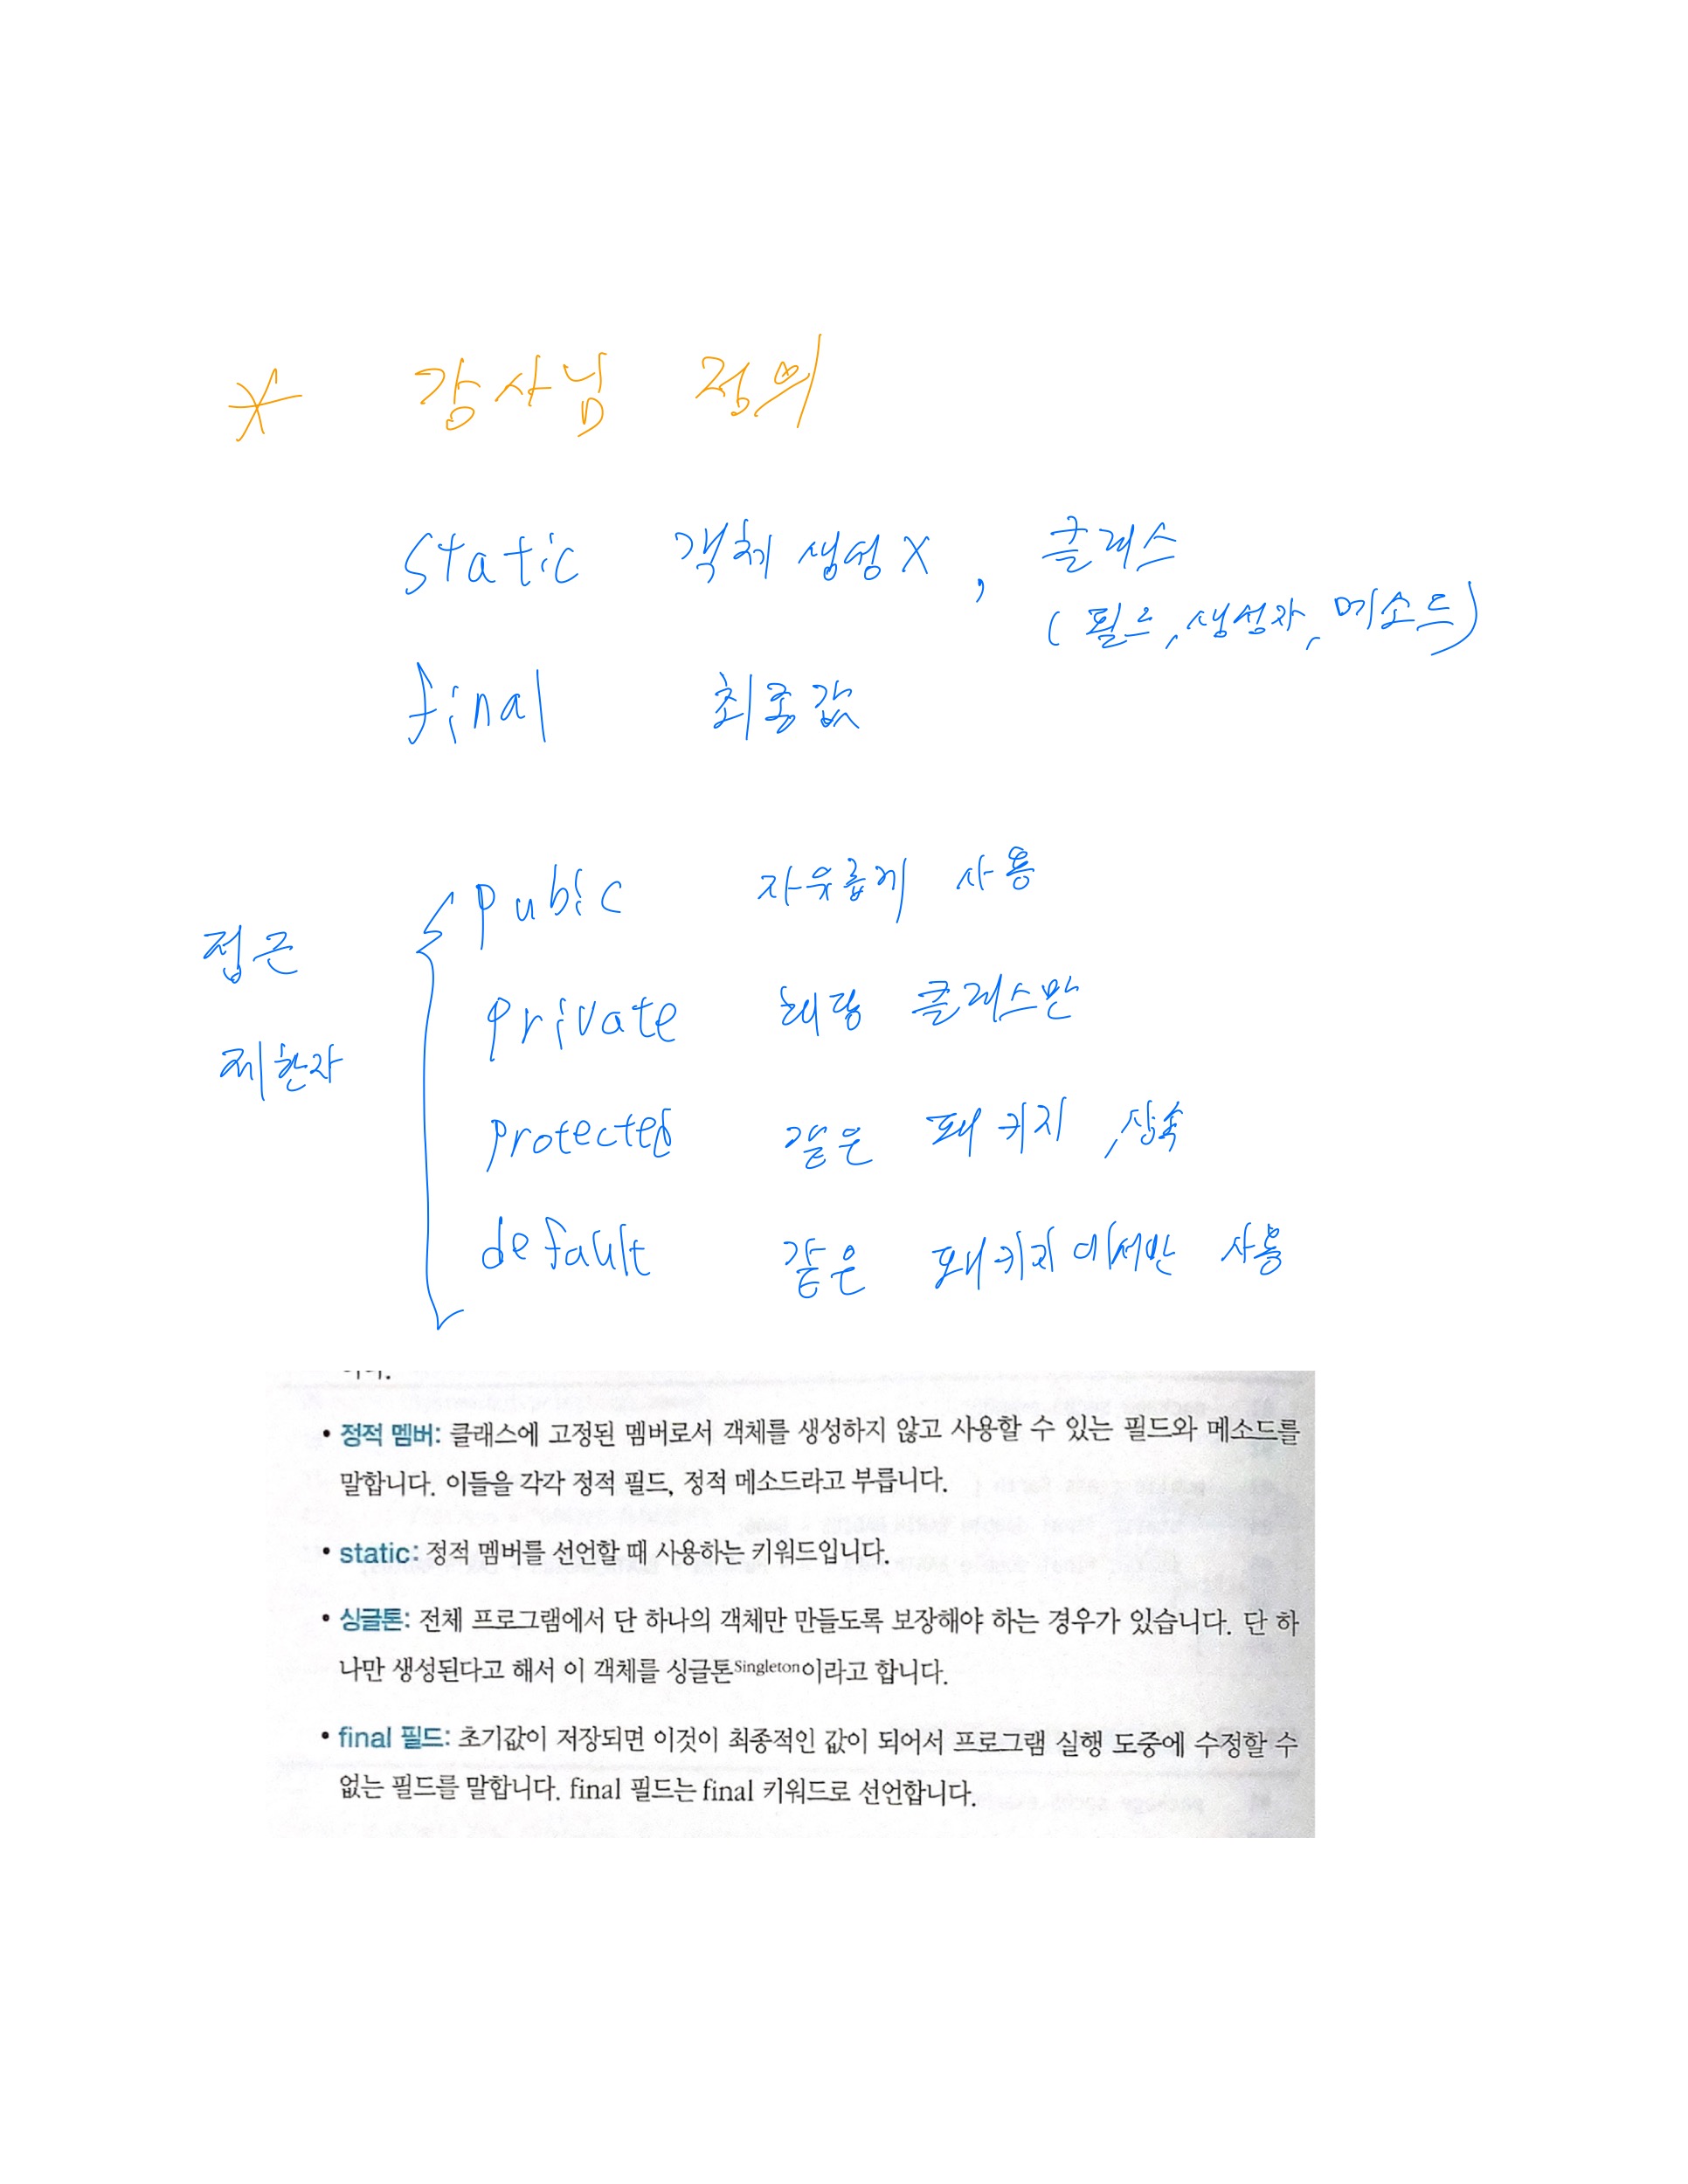 * 강사님 정의
static 객체 생성 X , 클래스
( 필드, 생성자, 메소드)
final 최종값
접근
제한자
pubic 자유롭게 사용
private 해당 클래스만
protected 같은 패키지, 상속
default 같은 패키지에서만 사용
• 정적 멤버: 클래스에 고정된 멤버로서 객체를 생성하지 않고 사용할 수 있는 필드와 메소드를
말합니다. 이들을 각각 정적 필드, 정적 메소드라고 부릅니다.
• static: 정적 멤버를 선언할 때 사용하는 키워드입니다.
• 싱글톤: 전체 프로그램에서 단 하나의 객체만 만들도록 보장해야 하는 경우가 있습니다. 단 하
나만 생성된다고 해서 이 객체를 싱글톤Singleton이라고 합니다.
• final 필드: 초기값이 저장되면 이것이 최종적인 값이 되어서 프로그램 실행 도중에 수정할 수
없는 필드를 말합니다. final 필드는 final 키워드로 선언합니다.